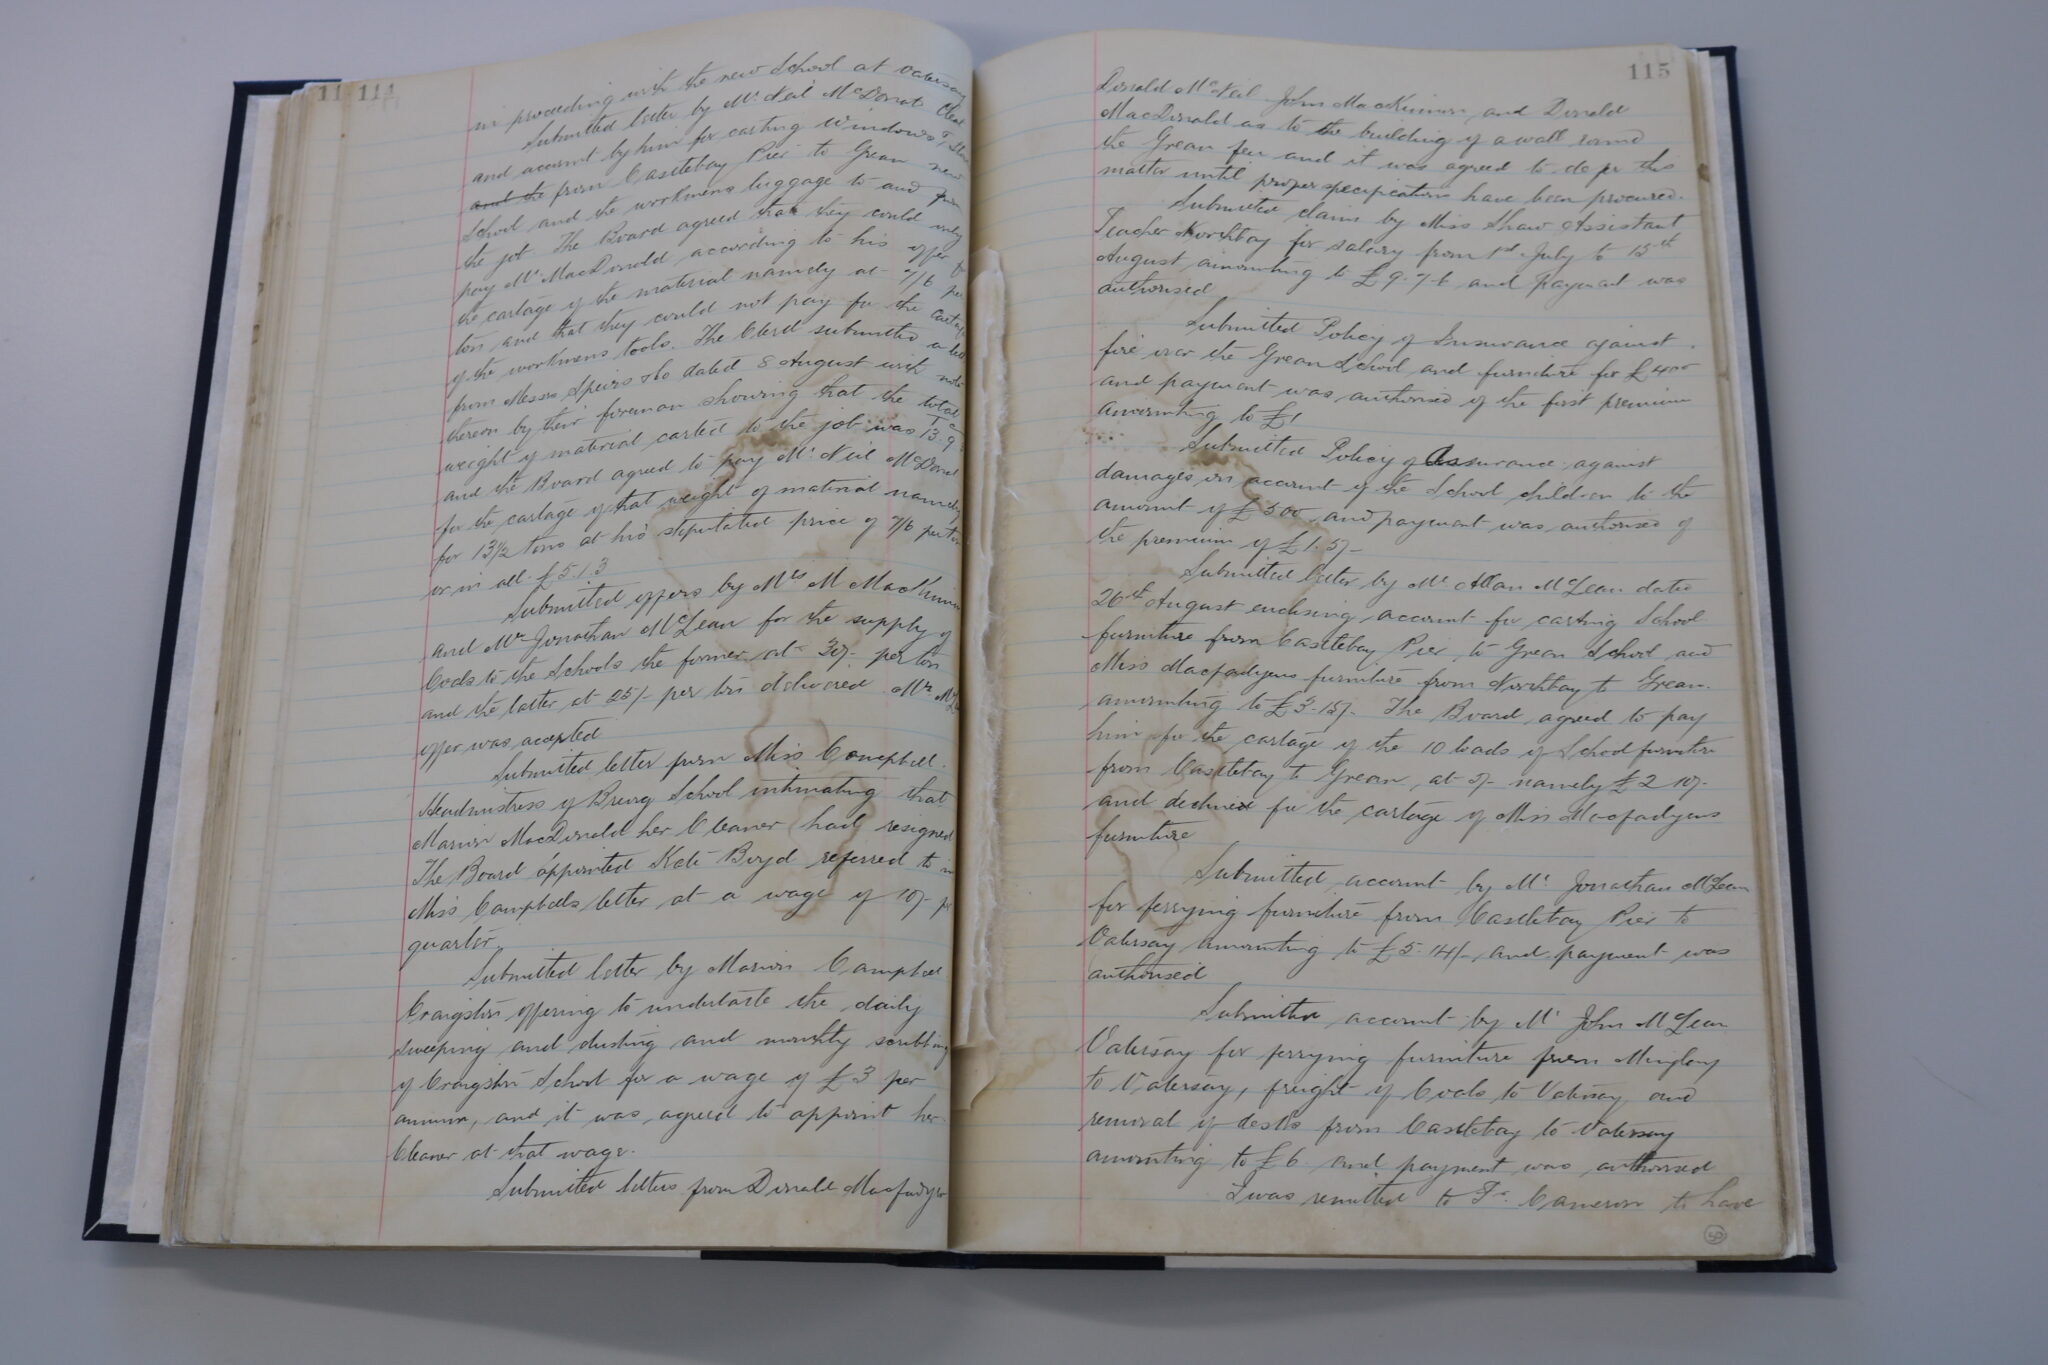 114
in proceeding with the new School at Vatersay
Submitted letter by Mr Neil McDonald Cleat
and account by him for carting Windows &
and the from Castlebay Pier to Grean new
School and the workmens luggage to and from
the job. The Board agreed that they could only
pay Mr MacDonald according to his offer for
the cartage of the material namely at 7/6 per
ton and that they could not pay for the cartage
of the workmens tools. The Clerk submitted a letter
from Messrs Speirs & Co dated 8 August with note
thereon by their foreman showing that the total
weight of material carted to the job was 13.9
and the Board agreed to pay Mr Neil McDonald
for the cartage of that weight of material namely
for 13½ tons at his stipulated price of 7/6 per ton
or in all £5.1.3
Submitted offers by Mrs M MacKinnon
and Mr Jonathan McLean for the supply of
Coals to the Schools the former at 30/- per ton
and the latter at 25/- per ton delivered. Mr McLean
offer was accepted
Submitted letter from Miss Campbell
Headmistress of Brevig School intimating that
Marion MacDonald her Cleaner had resigned
The Board appointed Kate Boyd referred to in
Miss Campbells letter at a wage of 10/- per
quarter.
Submitted letter by Marion Campbell
Craigston offering to undertake the daily
sweeping and dusting and monthly scrubbing
of Craigston School for a wage of £3 per
annum, and it was agreed to appoint her
Cleaner at that wage.
Submitted letters from Donald Macfadyen
115
Donald McNeil John MacKinnon and Donald
MacDonald as to the building of a wall round
the Grean feu and it was agreed to defer this
matter until proper specifications have been procured.
Submitted claim by Miss Shaw Assistant
Teacher Northbay for salary from 1st July to 15th
August amounting to £9.7.6 and payment was
authorised
Submitted Policy of Insurance against
fire over the Grean School and furniture for £400
and payment was authorised of the first premium
amounting to £1
Submitted Policy of Assurance against
damages on account of the School children to the
amount of £500 and payment was authorised of
the premium of £1.5/-
Submitted letter by Mr Allan McLean dated
26th August enclosing account for carting School
furniture from Castlebay Pier to Grean School and
Miss Macfadyens furniture from Northbay to Grean
amounting to £3.15/-. The Board agreed to pay
him for the cartage of the 10 loads of School furniture
from Castlebay to Grean at 5/- namely £2 10/-
and declined for the cartage of Miss Macfadyens
furniture
Submitted account by Mr Jonathan McLean
for ferrying furniture from Castlebay Pier to
Vatersay amounting to £5.14/- and payment was
authorised
Submitted account by Mr John McLean
Vatersay for ferrying furniture from Mingulay
to Vatersay, freight of Coals to Vatersay and
removal of desks from Castlebay to Vatersay
amounting to £6 and payment was authorised
I was remitted to Fr. Cameron to have
50